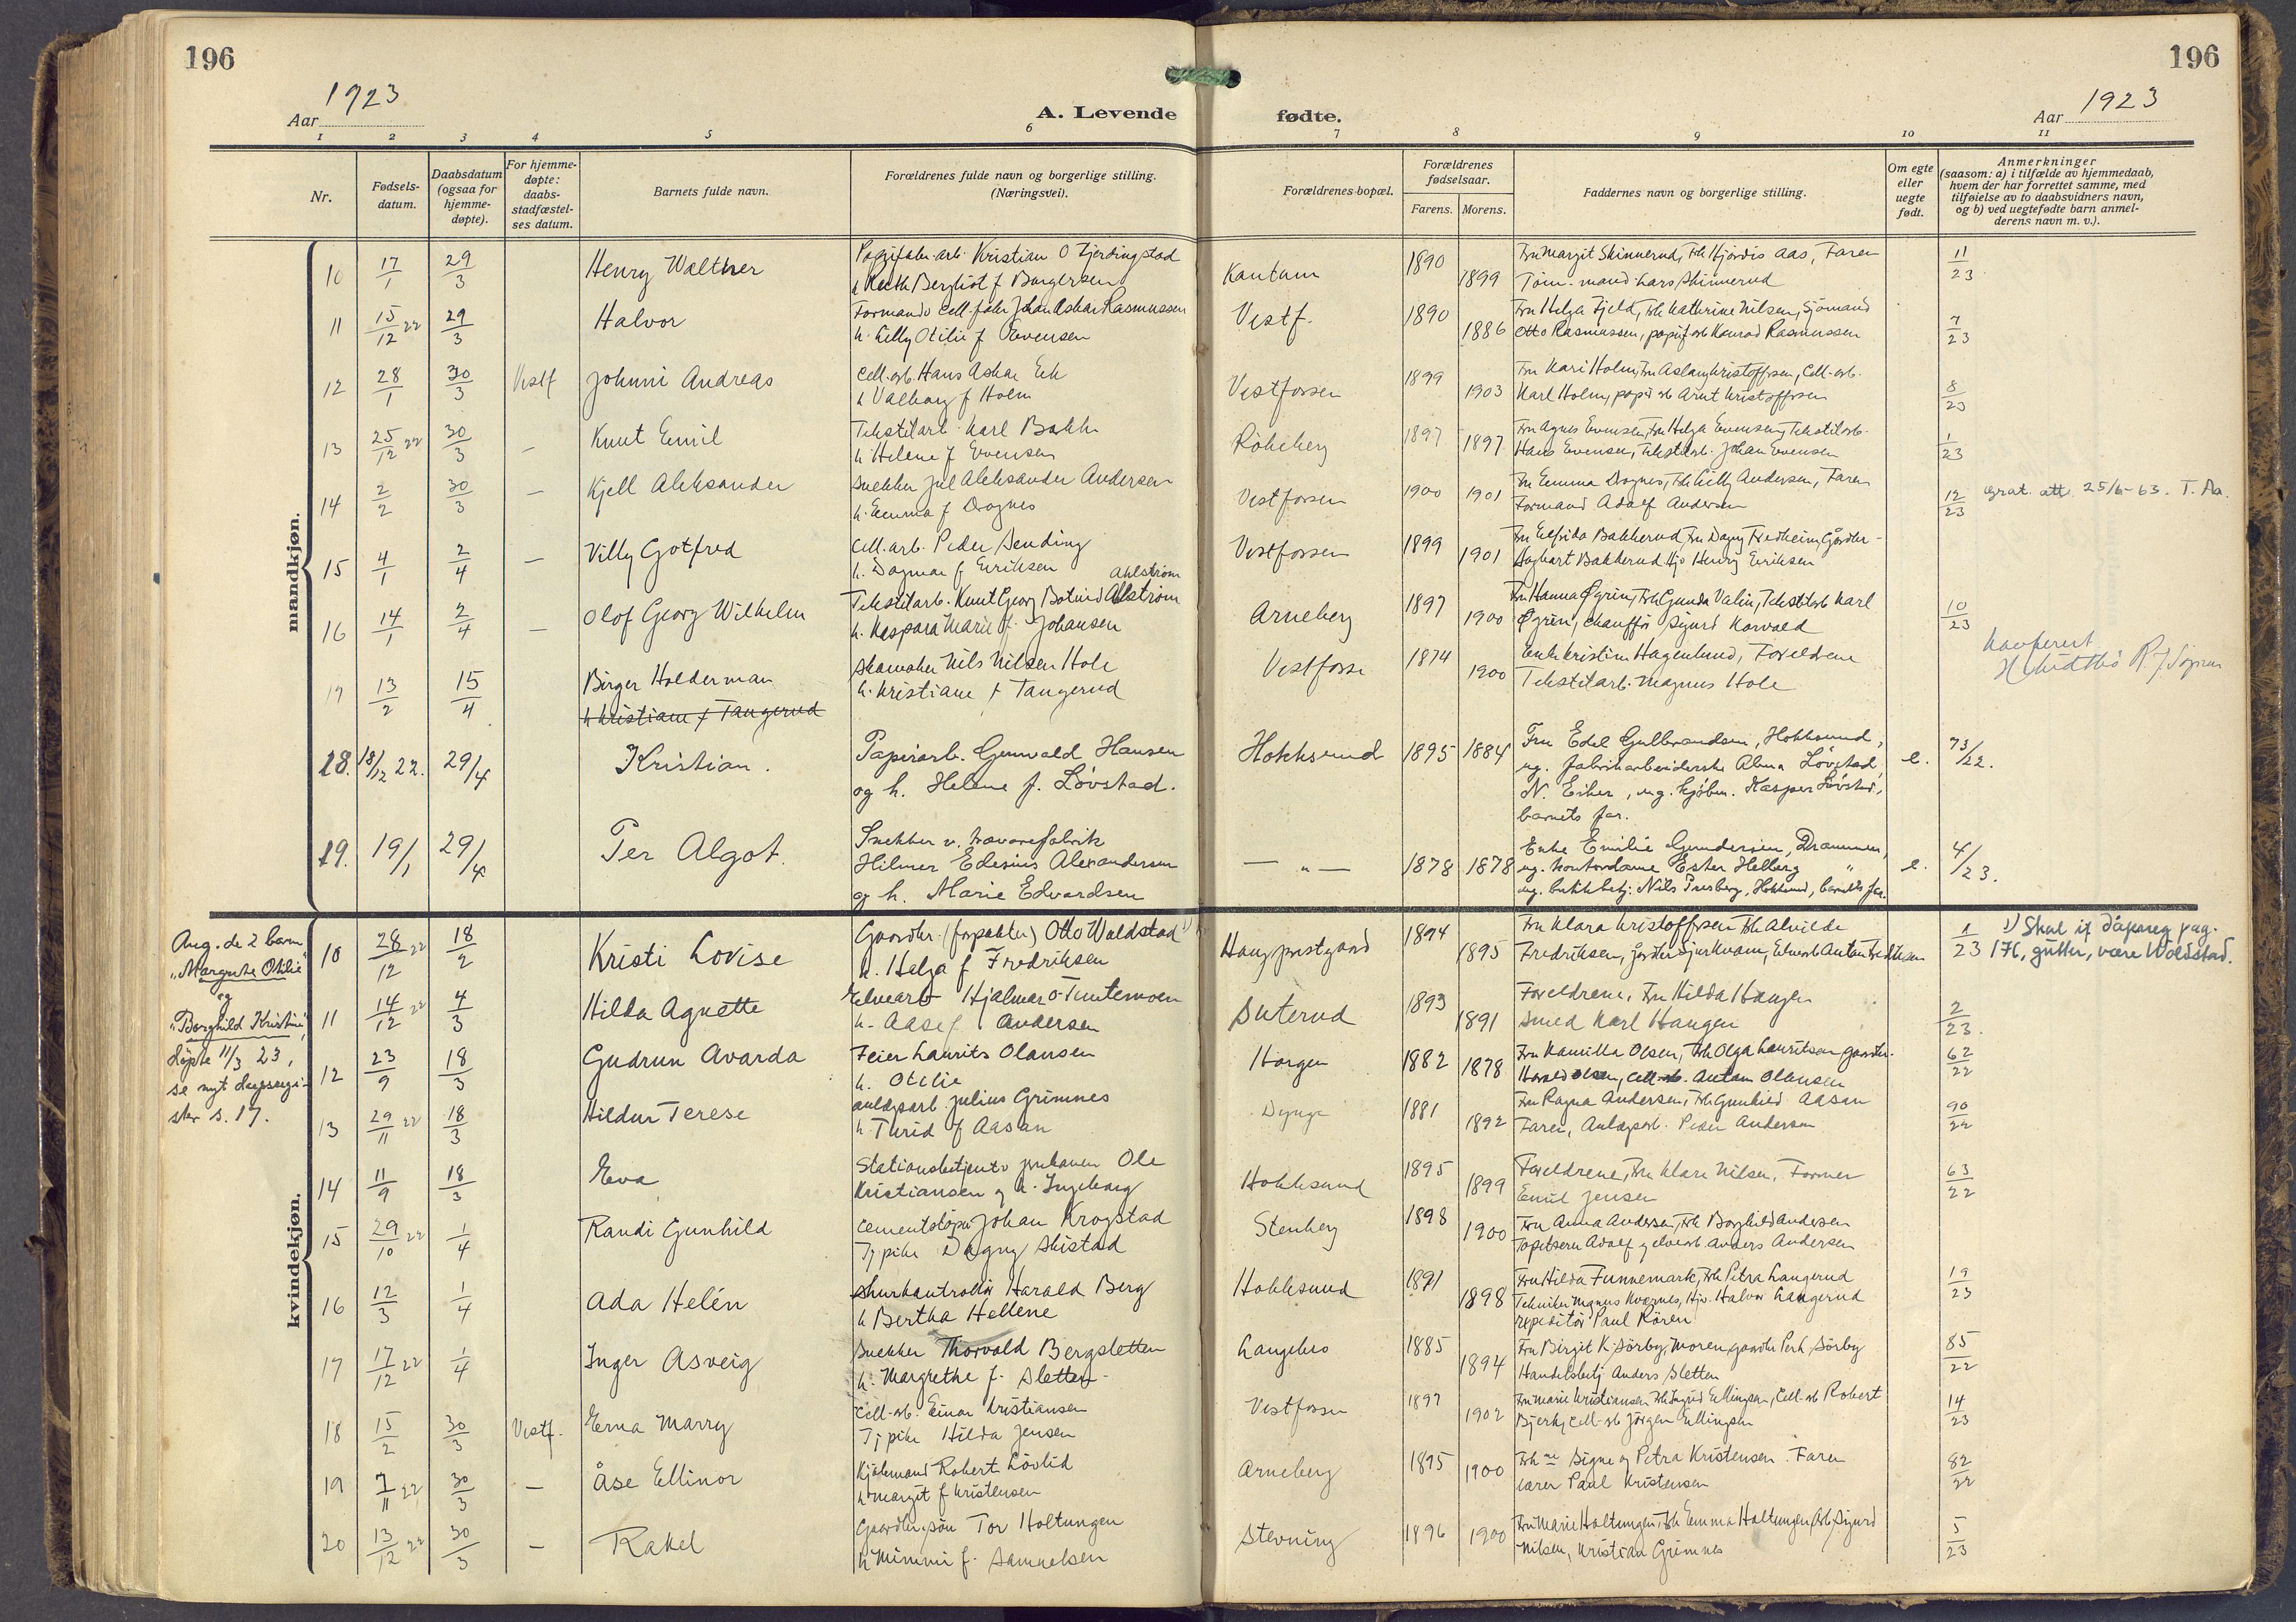 196
196
Aar 1923
A. Levende fødte.
Aar 1923
1 2 3 4 5 6 7 8 9 10 11
Nr.
Fødsels-
datum.
Daabsdatum
(ogsaa for
hjemme-
døpte).
For hjemme-
døpte:
daabs-
stadfæstel-
ses datum.
Barnets fulde navn.
Forældrenes fulde navn og borgerlige stilling.
(Næringsvei).
Forældrenes bopæl.
Forældrenes
fødselsaar.
Farens. Morens.
Faddernes navn og borgerlige stilling.
Om egte
eller
uegte
født.
Anmerkninger
(saasom: a) i tilfælde av hjemmedaab,
hvem der har forrettet samme, med
tilføielse av to daabsvidners navn,
og b) ved uegtefødte barn anmel-
derens navn m. v.).
mandkjøn.
10 17/1 29/3 Henry Walther
Kristian O Gjerdingstad
Kantum 1890 1899
Fru Margit Skinnerud, Frk Hjørdis Aas, Faren
Tøm.mand Lars Skinnerud
11/23
11 15/12 22 29/3 Halvor
Formand v Cell.fabr Johan Askar Rasmussen
h. Otilie f Evensen
Vestf. 1890 1886
Fru Helga Fjeld, Frk Kathrine Nilsen, Sjømand
Otto Rasmussen, papirf arb Konrad Rasmussen
7/23
12 28/1 30/3 Vestf Johnni Andreas
Cell.arb. Hans Askar Eek
h Valborg f Holm
Vestfossen 1899 1903
Fru Kari Holm, Fru Aslaug Kristoffersen, Cell-arb.
Karl Holm, papir arb Arnt Kristoffersen
8/23
13 25/12 22 30/3 — Knut Emil
Tekstilarb. Karl Bakke
h. Helene f Evensen
Rokeberg 1897 1897
Fru Agnes Evensen, Fru Helga Evensen, Tekstilarb.
Hans Evensen, Tekstilarb. Johan Evensen
1/23
14 2/2 30/3 — Kjell Aleksander
Snekker Jul Aleksander Andersen
h. Emma f Dragnes
Vestfossen 1900 1901
Fru Emma Dragnes, Frk Lilly Andersen, Faren
Formand Adolf Andersen
12/23 Grat. att. 25/6-63. T. Aa.
15 4/1 2/4 — Villy Gotfred
Cell.arb. Peder Sending
h. Dagmar f Eriksen
Vestfossen 1899 1901
Fru Elfrida Bakkerud, Fru Dagny Fredheim, Gårdbr-
Hagbart Bakkerud Hjv Henry Eriksen
16 14/1 2/4 — Olof Georg Wilhelm
Ahlstrøm
Tekstilarb. Knut Georg Botvid Ahlstrøm
h. Kaspara Marie f. Johansen
Arneberg 1897 1900
Fru Hanna Øgrim, Frk Gunda Valin, Tekstilarb Karl
Øgrim, chauffør Sigurd Korvald
10/23
17 13/2 15/4 Birger Holderman
h Kristiane f Tangerud
Skomaker Nils Nilsen Hole
h. Kristiane f Tangerud
Vestfosse 1874 1900
Enke Kristine Hagenlund, Foreldrene
Tekstilarb. Magnus Hole
Konferert
18. 18/12 22. 29/4 Kristian.
Papirarb. Gunvald Hansen
og h. Helene f. Løvstad.
Hokksund 1895 1884
Fru Edel Gulbrandsen, Hokksund,
ug. fabrikarbeiderske Alma Løvstad,
N. Eiker, ug. kjøbm. Kasper Løvstad,
barnets far.
e. 73/22.
19. 19/1 29/4 Per Algot.
Snekker v. trævarefabrik
Hilmer Edesius Alexandersen
og h. Marie Edvardsen
— " — 1878 1878
Enke Emilie Gundersen, Drammen,
ug. kontordame Ester Helberg "
ug. butikbetj. Nils Presberg, Hokksund, barnets far.
e. 4/23.
kvindekjøn.
Ang. de 2 barn
"Margrete Otilie"
og
"Borghild Kristine",
døpte 11/3 23,
se nyt daapsregi-
ster s. 17.
10 28/12 22 18/2 Kristi Lovise
Gaardbr. (forpakter) Otto Waldstad 1)
h. Helga f Fredriksen
Haug prestgaard 1894 1895
Fru Klara Kristoffersen Frk Alvilde
Fredriksen, Elvearb Anton Fredriksen
1/23
1) Skal if dåpsreg pag.
176, gutter, være Woldstad.
11 14/12 22 4/3 Hilda Agnethe
Elvearb Hjalmar O Tuntemoen
h. Aase f Andersen
Suterud 1893 1891
Foreldrene, Fru Hilda Haugen
Smed Karl Haugen
2/23.
12 23/9 18/3 Gudrun Avarda
Feier Laurits Olausen
h. Otilie
Horgen 1882 1878
Fru Kamilla Olsen, Frk Olga Lauritsen gaardbr.
Harald Olsen, Cell-arb. Anton Olausen
62/22
13 29/11 22 18/3 Hildur Terese
Anlægsarb. Julius Grimnes
h. Turid f Aasan
Dynge 1881 1892
Fru Ragna Andersen, Frk Gunhild Aasan
Faren, Anlægsarb. Peder Andersen
90/22
14 11/9 18/3 Eva
Stationsbetjent v jernbanen Ole
Kristiansen og h. Ingeborg
Hokksund 1895 1899
Foreldrene, Fru Klara Nilsen, Former
Emil Jensen
63/22
15 29/10 22 1/4 Randi Gunhild
Cementstøper Johan Krogstad
Tj pike Dagny Skistad
Stenberg 1898 1900
Fru Anna Andersen, Frk Borghild Andersen
Tapetserer Adolf og elvearb. Anders Andersen
16 12/3 1/4 Ada Helén
Skurkontrollør Harald Berg
h Bertha Hellene
Hokksund 1891 1898
Fru Hilda Funnemark, Frk Petra Langerud
Tekniker Magnus Kværnes, Hjv. Halvor Langerud
expeditør Paul Røren
19/23
17 17/12 22 1/4 Inger Asveig
Snekker Thorvald Bergsletten
h. Margrethe f. Sletten-
Langebro 1885 1894
Fru Birgit K. Sørby, Moren, gaardbr Per K. Sørby
Handelsbetj Anders Sletten
85/22
18 15/2 30/3 Vestf. Erna Marry
Cell-arb. Einar Kristiansen
Tj pike Hilda Jensen
Vestfossen 1897 1902
Fru Marie Kristiansen Frk Ingrid Ellingsen, Cell-arb Robert
Bjerke, Cell-arb Jørgen Ellingsen
14/23
19 7/11 22 30/3 — Åse Ellinor
Kjøbmand Robert Løvlid
h Margit f Kristensen
Arneberg 1895 1900
Frk ne Signe og Petra Kristensen. Faren
lærer Paul Kristensen
82/22
20 13/12 22 30/3 — Rakel
Gaardbr.søn Tor Holtungen
h Mimmi f. Samuelsen
Stevning 1896 1900
Fru Marie Holtungen, Frk Emma Holtungen, Arb, Sigurd
Nilsen, Kristian Grimnes
5/23